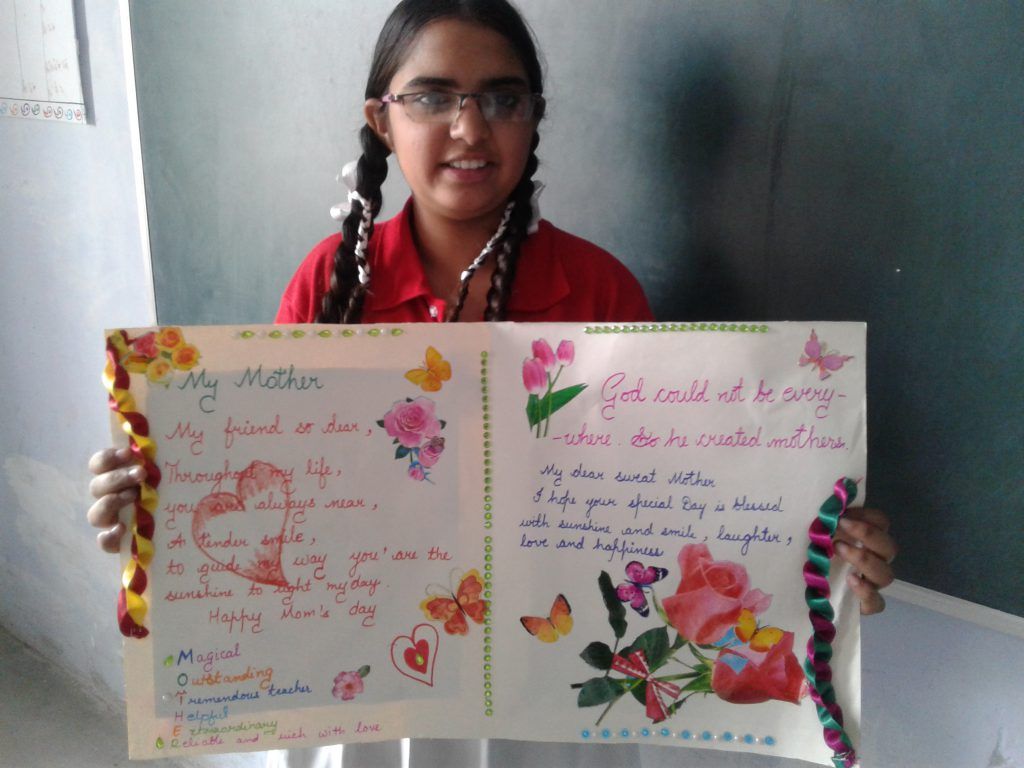 My Mother
My friend so dear,
Throughout my life,
you are always near,
A tender smile,
to guide my way you' are the
sunshine to light my day.
Happy Mom's day
Magical
Outstanding
Tremendous teacher
Helpful
Extraordinary
Reliable and with love
God could not be every-
-where. So he created mothers.
My dear sweat Mother
I hope your special Day is blessed
with sunshine and smile, laughter,
love and happiness